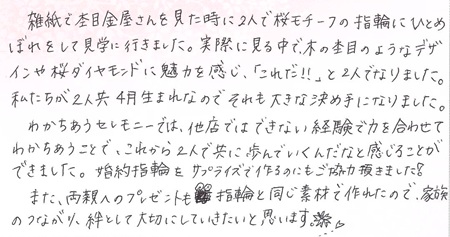 雑紙で杢目金屋さんを見た時に2人で桜モチーフの指輪にひとめ
ぼれをして見学に行きました。実際に見る中で、木の杢目のようなデザ
インや桜ダイヤモンドに魅力を感じ、「これだ!!」と2人でなりました。
私たちが2人共4月生まれなのでそれも大きな決め手になりました。
わかちあうセレモニーでは、他店ではできない経験で力を合わせて
わかちあうことで、これから2人で共に歩んでいくんだなと感じることが
できました。婚約指輪をサプライズで作るのにもご協力頂きました!
また、両親へのプレゼントも指輪と同じ素材で作れたので、家族
のつながり、絆として大切にしていきたいと思います。